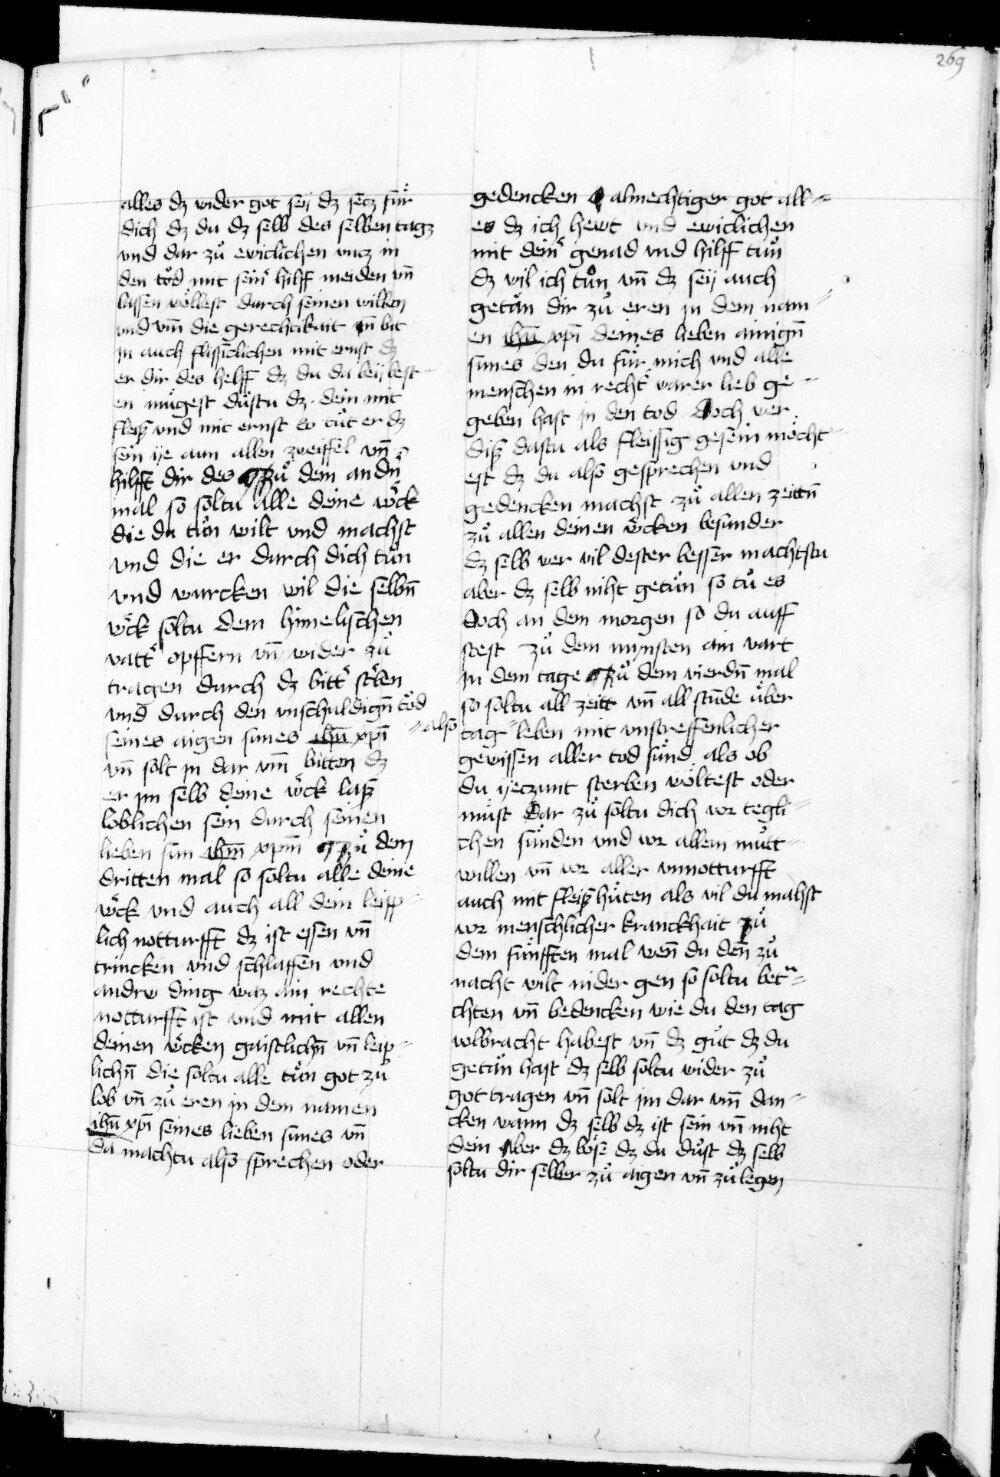 269
alles dz wider got seÿ dz secz für
dich dz du dz selb des selben tagz
vnd dar zů ewiclichen vncz in
den tod mit seiner hilff meiden vn̄
lassen wöllest durch seinen willen
vnd vm̄ die gerechtikait vn̄ bit
jn auch flissiclichen mit ernst dz
er dir des helff dz du da beÿ best
en mügest důstu dz dein mit
fleiß vnd mit ernst so tůt er dz
sein ÿe aun allen zweiffel vn̄
hilfft dir des ¶ Zů dem andn̄
mal so soltu alle deine wöck
die du tůn wilt vnd machst
vnd die er durch dich tůn
vnd wurcken wil die selbn̄
wöck soltu dem himelischen
vattˀ opffern vn̄ wider zů
tragen durch dz bittˀ stˀben
vnd durch den vnschuldign̄ tod
seines aigen sunes ihū xp̄i
vn̄ solt jn dar vm̄ bitten dz
er jm selb deine wöck laß
loblichen sein durch seinen
lieben sun ihm̄ xpm̄ ¶ Zů dem
dritten mal so soltu alle deine
wöck vnd auch all dein leipp⸗
lich notturfft dz ist essen vn̄
trincken vnd schlaffen vnd
andrw ding waz ain rechte
notturfft ist vnd mit allen
deinen wöcken gaistlichn̄ vn̄ leip⸗
lichn̄ die soltu alle tůn got zů
lob vn̄ zů eren in dem namen
ihū xp̄i seines lieben sunes vn̄
da machtu also sprechen oder
gedencken O almechtiger got all⸗
es dz ich hewt vnd ewiclichen
mit deinˀ genad vnd hilff tůn
dz wil ich tůn vn̄ dz seÿ auch
getän dir zů eren jn dem nam⸗
en ihū xp̄i deines lieben ainign̄
sunes den du für mich vnd alle
menschen in rechtˀ warer lieb ge⸗
geben hast jn den tod Doch wer
diß dastu als fleissig gesein möcht⸗
est dz du also gesprechen vnd
gedencken machst zů allen zeittn̄
zů allen deinen wöcken besunder
dz selb wer vil dester besser machtstu
aber dz selb niht getůn so tů es
Doch an dem morgen so du auff
stest zů dem mynsten ain vart
jn dem tage ¶ Zů dem vierdn̄ mal
so soltu all zeitt vn̄ all stunde über
⸗also tag⸗leben mit vnstreffenlicher
gewissen aller tod sünd als ob
du ÿeczunt sterben wöltest oder
müst Dar zů soltu dich vor tegli⸗
chen sünden vnd vor allem můtt⸗
willen vn̄ vor aller vnnotturfft
auch mit fleiß hüten als vil du mahst
vor menschlicher kranckhait Zů
dem fünfften mal wen̄ du den̄ zů
nacht wilt nider gen so soltu betˀ⸗
chten vn̄ bedencken wie du den tag
volbracht habest vn̄ dz gůt dz du
getän hast dz selb soltu wider zů
got tragen vn̄ solt jm dar vm̄ dan⸗
cken wann dz selb dz ist sein vn̄ niht
dein Aber dz böse dz du důst dz selb
soltu dir selber zů aigen vn̄ zů legen